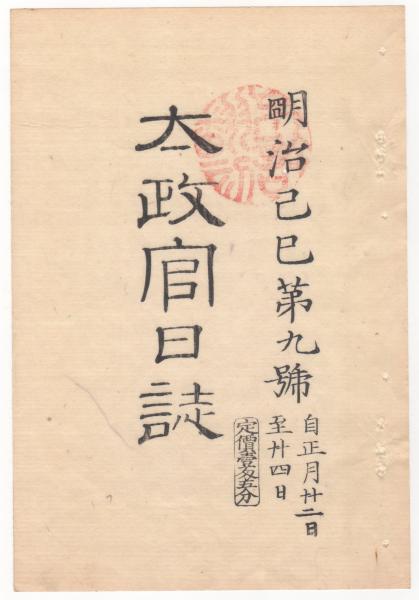 明治己巳第九號
自正月廿二日
至廿四日
定價壹匁五分
太政官日誌